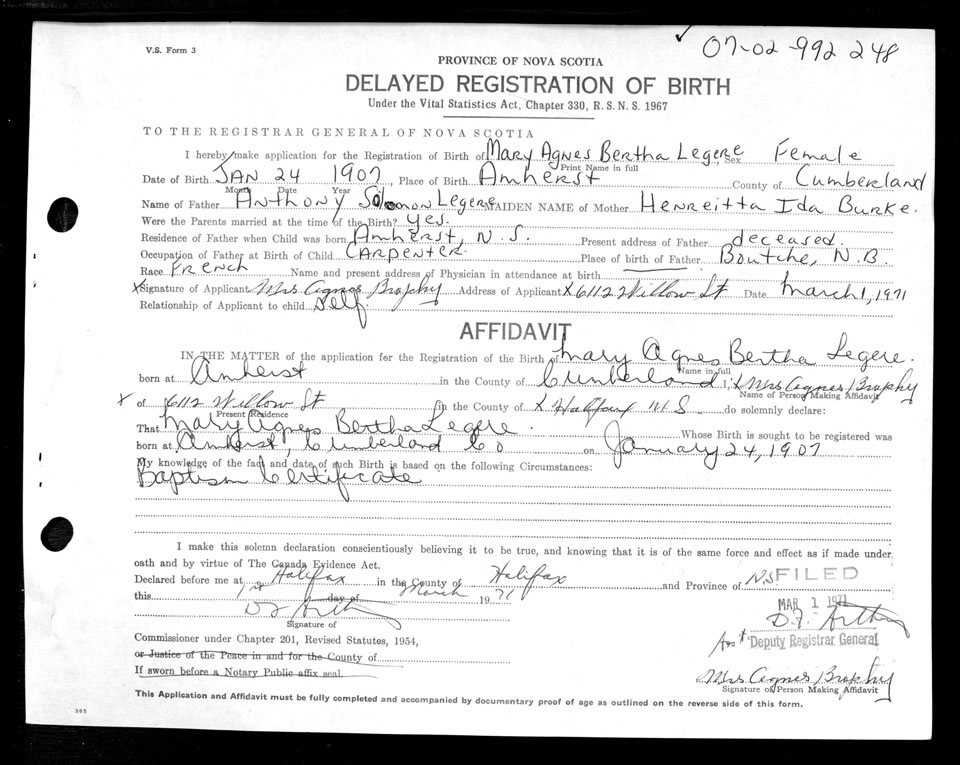 V.S. Form 3
✓ 07-02-992 248
PROVINCE OF NOVA SCOTIA
DELAYED REGISTRATION OF BIRTH
Under the Vital Statistics Act, Chapter 330, R.S.N.S. 1967
TO THE REGISTRAR GENERAL OF NOVA SCOTIA
I hereby make application for the Registration of Birth of Mary Agnes Bertha Legere Sex Female
Print Name in full
Date of Birth JAN 24 1907, Place of Birth Amherst County of Cumberland
Month Date Year
Name of Father Anthony Solomon Legere MAIDEN NAME of Mother Henreitta Ida Burke.
Were the Parents married at the time of the Birth? yes.
Residence of Father when Child was born Amherst, N.S. Present address of Father deceased.
Occupation of Father at Birth of Child CARPENTER. Place of birth of Father Boutche, N.B.
Race French Name and present address of Physician in attendance at birth
X Signature of Applicant Mrs Agnes Brophy Address of Applicant X 6112 Willow St Date March 1, 1971
Relationship of Applicant to child self
AFFIDAVIT
IN THE MATTER of the application for the Registration of the Birth of Mary Agnes Bertha Legere.
Name in full
born at Amherst in the County of Cumberland I, X Mrs Agnes Brophy
Name of Person Making Affidavit
X of 6112 Willow St in the County of X Halifax N S do solemnly declare:
Present Residence
That Mary Agnes Bertha Legere. Whose Birth is sought to be registered was
born at Amherst, Cumberland Co on January 24, 1907
My knowledge of the fact and date of such Birth is based on the following Circumstances:
Baptism Certificate
I make this solemn declaration conscientiously believing it to be true, and knowing that it is of the same force and effect as if made under
oath and by virtue of The Canada Evidence Act.
Declared before me at Halifax in the County of Halifax and Province of N.S.
FILED
this 1st day of March 1971
MAR 1 1971
Signature of
Deputy Registrar General
Commissioner under Chapter 201, Revised Statutes, 1954,
or Justice of the Peace in and for the County of
If sworn before a Notary Public affix seal.
Mrs Agnes Brophy
Signature of Person Making Affidavit
This Application and Affidavit must be fully completed and accompanied by documentary proof of age as outlined on the reverse side of this form.
365